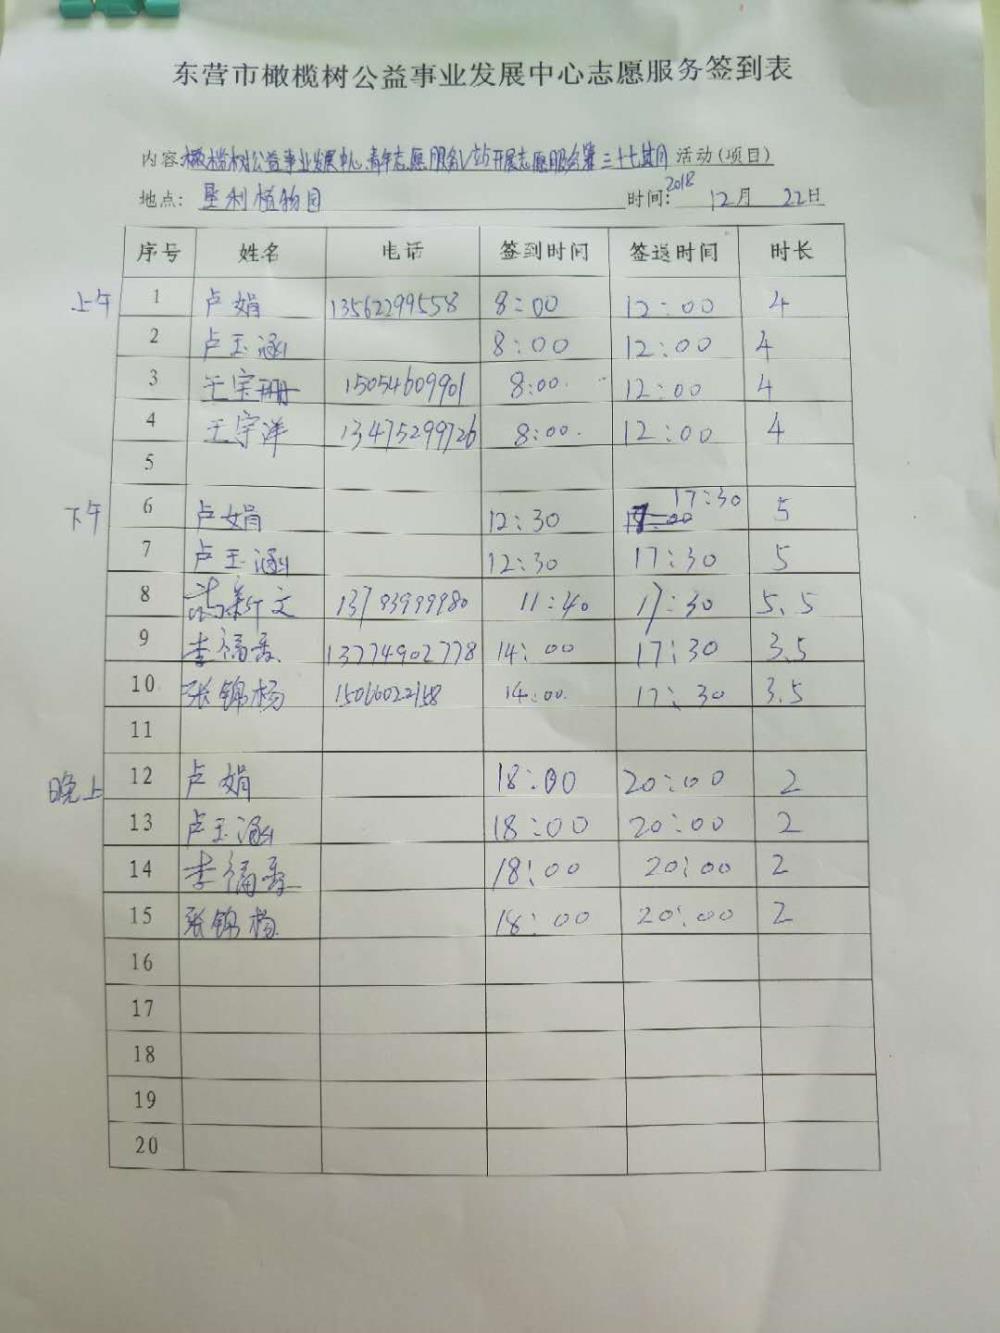 东营市橄榄树公益事业发展中心志愿服务签到表
内容:橄榄树公益事业发展中心青年志愿服务V站开展志愿服务第三十七期 活动(项目)
地点: 垦利植物园 时间: 2018 12月 22日
序号 姓名 电话 签到时间 签送时间 时长
上午 1 卢娟 13562299558 8:00 12:00 4
2 卢玉涵 8:00 12:00 4
3 王宇珊 15054609901 8:00. 12:00 4
4 王宇洋 13475299726 8:00. 12:00 4
5
下午 6 卢娟 12:30 17:30 5
7 卢玉涵 12:30 17:30 5
8 新文 13793999980 11:40 17:30 5.5
9 李福香 13774902778 14:00 17:30 3.5
10 张锦杨 15066022158 14:00. 17:30 3.5
11
晚上 12 卢娟 18:00 20:00 2
13 卢玉涵 18:00 20:00 2
14 李福香 18:00 20:00 2
15 张锦杨 18:00 20:00 2
16
17
18
19
20